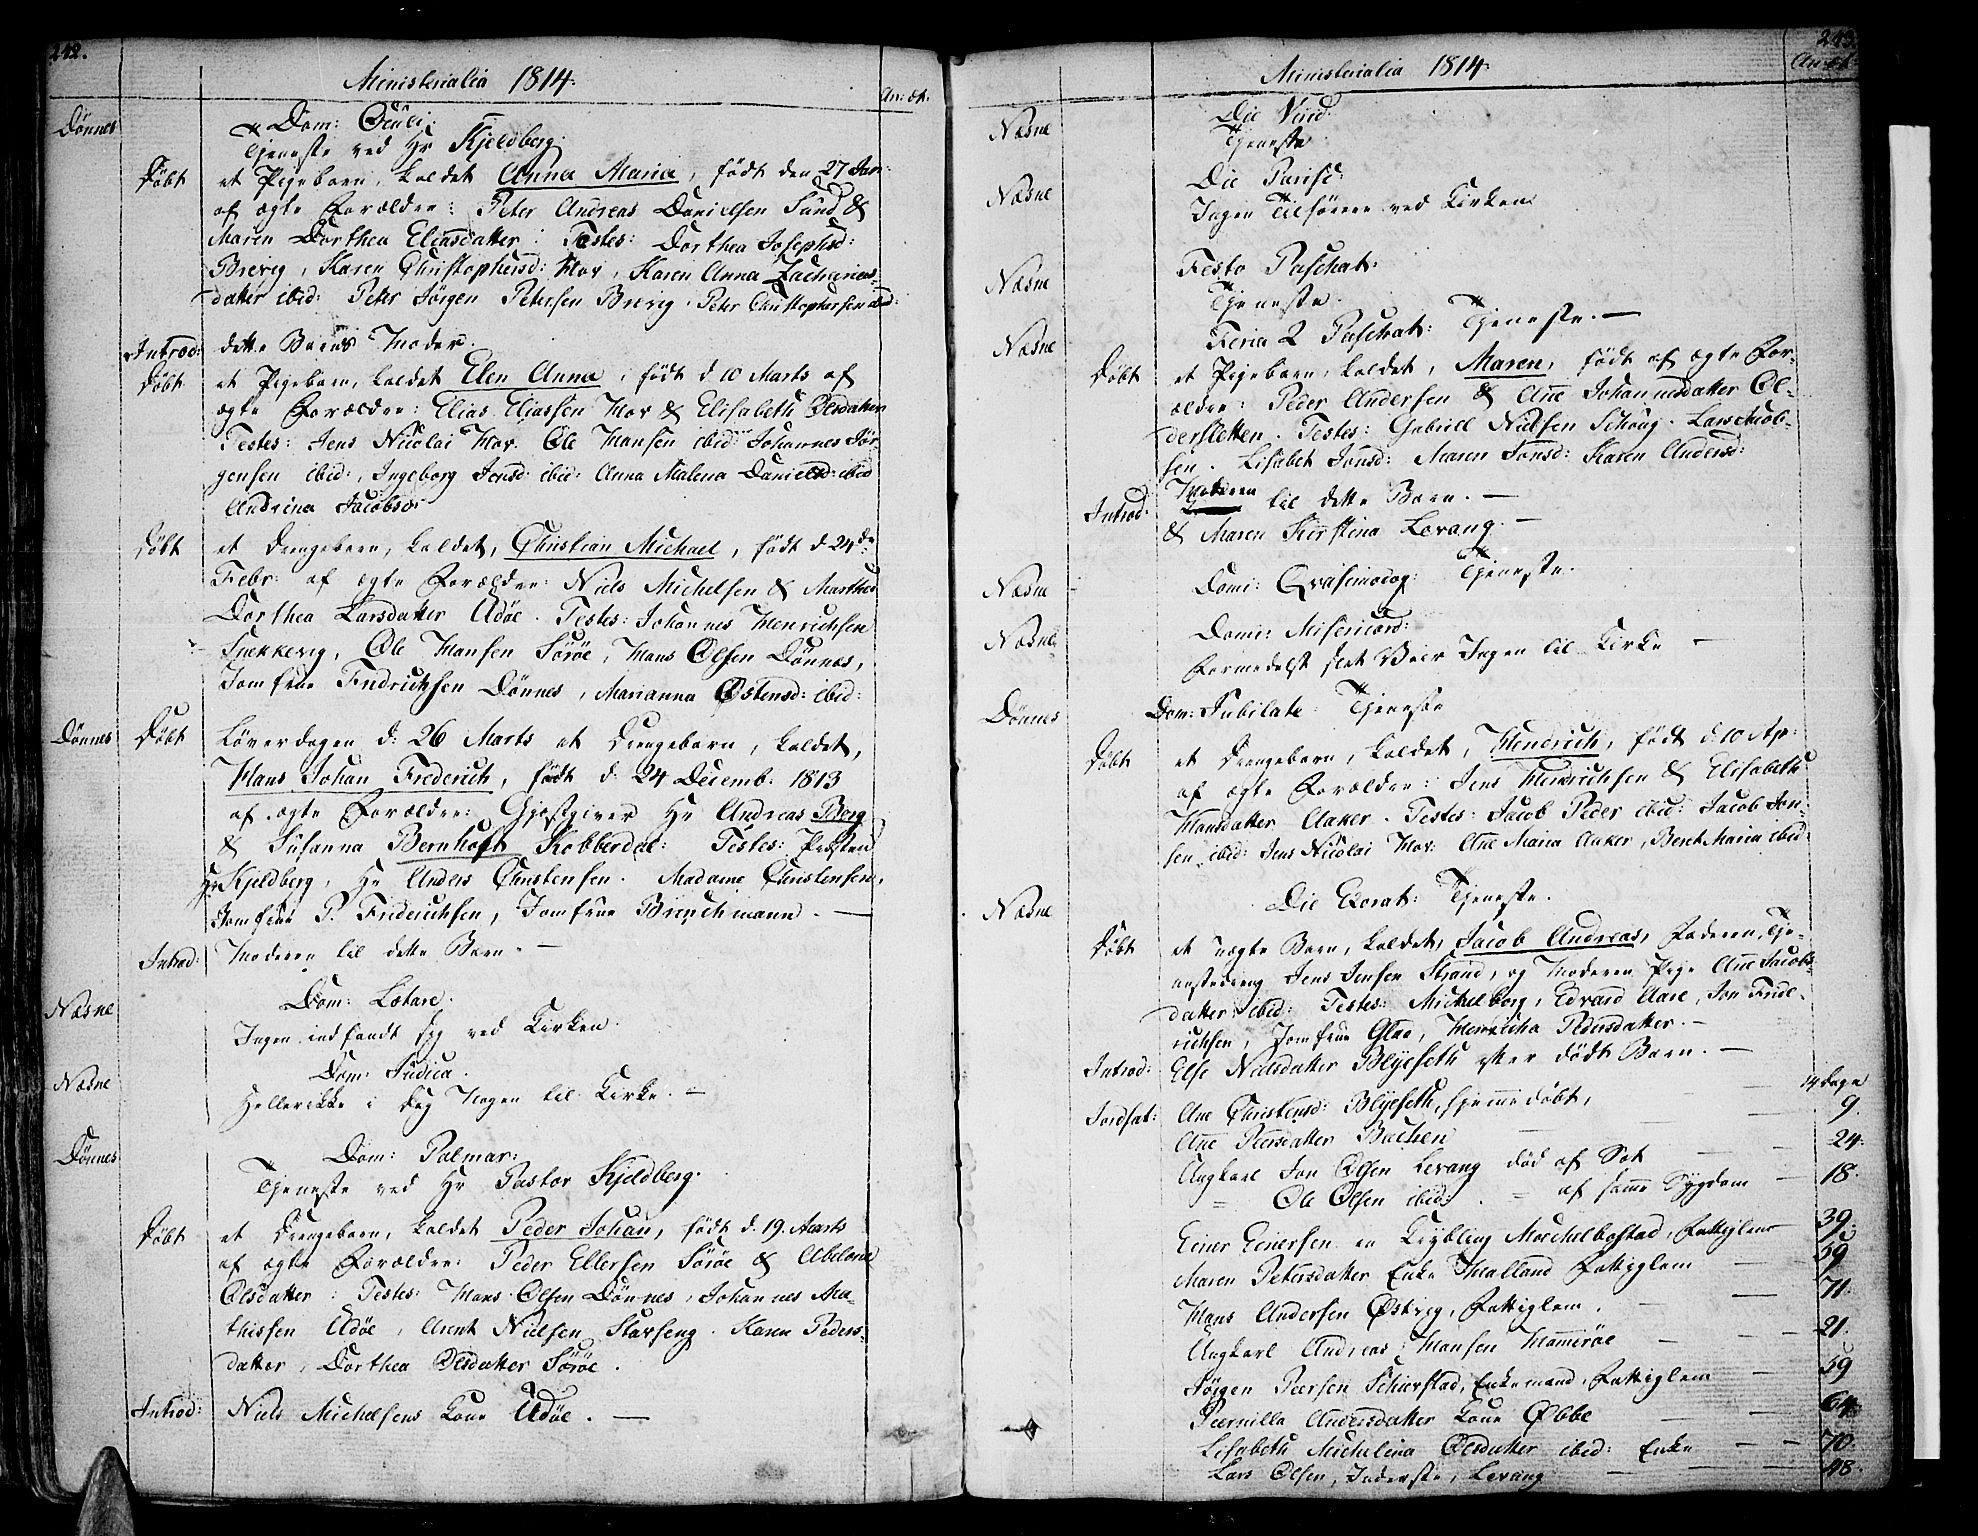 242.
Ministerialia 1814.
An: æt.
Dönnes
Dom: Oculi.
Tjeneste ved Hr Kjeldberg.
Döbt et Pigebarn, kaldet Anna Maria, födt den 27 Jan:
af ægte Forældre: Peter Andreas Danielsen Sund &
Maren Dorthea Eliasdatter. Testes: Dorthea Josephsd:
Brevig, Karen Christophersd: Mov, Karen Anna Zachariæ
datter ibid: Peter Jörgen Petersen Brevig, Peter Christophersen ibd:
Introd: dette Barns Moder.
Döbt et Pigebarn, kaldet Elen Anna, födt d 10 Marts af
ægte Forældre: Elias Eliassen Mov & Elisabeth Olsdatter
Testes: Jens Nicolai Mov. Ole Hansen ibid: Johannes Jör-
gensen ibid:, Ingeborg Jensd: ibid: Anna Malena Danielsd: ibid
Andrina Jacobsd:
Döbt et Drengebarn, kaldet, Christian Michael, födt d 24de
Febr: af ægte Forældre: Niels Michelsen & Marthe
Dorthea Larsdatter Adöe. Testes: Johannes Henrichsen
Snekkevig, Ole Hansen Söröe, Hans Olsen Dönnes,
Jomfrue Fridrichsen Dönnes, Marianna Östensd: ibid:
Dönnes
Döbt Löverdagen d: 26 Marts et Drengebarn, kaldet,
Hans Johan Frederich, födt d. 24 Decemb. 1813
af ægte Forældre: Gjæstgiver Hr Andreas Berg
& Susanna Bernhoft Kobberdal: Testes: Præsten
Hr Kjeldberg, Hr Anders Christensen. Madame Christensen,
Jomfrue P. Friderichsen, Jomfrue Brinchmann. —
Introd: Moderen til dette Barn. —
Næsne
Dom: Lætare.
Ingen indfandt sig ved Kirken.
Næsne
Dom: Judica.
Hellerikke i Dag Nogen til Kirke. —
Dönnes
Dom: Palmar:
Tjeneste ved Hr Pastor Kjeldberg.
Döbt et Drengebarn, kaldet Peder Johan, födt d. 19. Marts
af ægte Forældre: Peder Ellersen Söröe & Abelone
Olsdatter: Testes: Hans Olsen Dönnes, Johannes Ma-
thissen Adöe, Arent Nielsen Stavseng. Karen Peders-
datter, Dorthea Olsdatter Söröe.
Introd: Niels Michelsens Kone Adöe. —
243.
Ministerialia 1814.
An: æt.
Næsne
Die Virid.
Tjeneste
Næsne
Die Parisc:
Ingen Tilhörere ved Kirken
Næsne
Festo Paschat:
Tjeneste.
Næsne
Feria 2 Paschat: Tjeneste. —
Döbt et Pigebarn, kaldet, Maren, födt af ægte For-
ældre: Peder Andersen & Ane Johannesdatter Ol-
dersletten. Testes: Gabriel Nielsen Schoug. Lars Jacob-
sen. Lisabet Jonsd: Maren Jonsd: Karen Andersd:
Introd: Moderen til dette Barn. —
& Maren Kirstina Levang. —
Næsne
Domi: Qvasimodog: Tjeneste.
Næsne
Domi: Misericord:
Formedelst slet Veir Ingen til Kirke —
Dönnes
Dom: Jubilate. Tjeneste
Döbt et Drengebarn, kaldet, Hendrich, födt d: 10 Ap:
af ægte Forældre: Jens Henrichsen & Elisabeth
Hansdatter Aaker. Testes: Jacob Peder ibid: Jacob Jon-
sen ibid: Jens Nicolai Mov: Ane Maria Aaker, Beret Maria ibid:
Næsne
Die Exorat: Tjeneste.
Döbt et uægte Barn, kaldet, Jacob Andreas, Faderen Tje-
nestedreng Jens Jensen Strand, og Moderen Pige Ane Jacobs-
datter ibid: Testes: Michel Borg, Edvard Aare, Jon Frid-
richsen, Jomfrue Glad, Henricha Pedersdatter. —
Introd: Else Nielsdatter Blyeseth efter dödt Barn. —
Jordfæt: Ane Christensd: Blyeseth, hjemmedöbt, — 14 dage
Ane Peersdatter Bachen — 9.
Ungkarl Jon Olsen Levang död af Sot — 24.
= Ole Olsen ibid: = af samme Sygdom — 18.
Einer Einersen en Krybling Michelbostad, Fattiglem 39.
Maren Petersdatter Enke Halland Fattiglem — 59
Hans Andersen Östvig, Fattiglem. — 71.
Ungkarl Andreas Hansen Hammeröe — 21.
Jörgen Peersen Schierstad, Enkemand, Fattiglem — 59
Peernille Andersdatter Kone Øbbe — 64.
Lisabeth Michelina Olsdatter ibid: Enke — 70.
Lars Olsen, Inderste, Levang — 48.